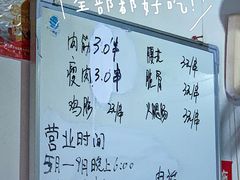 全部都好吃!
肉筋 3.0/串
瘦肉 3.0/串
鸡肠 2/串
腰花 3/串
脆骨 3/串
火腿肠 3/串
营业时间
5月—9月晚上6:00